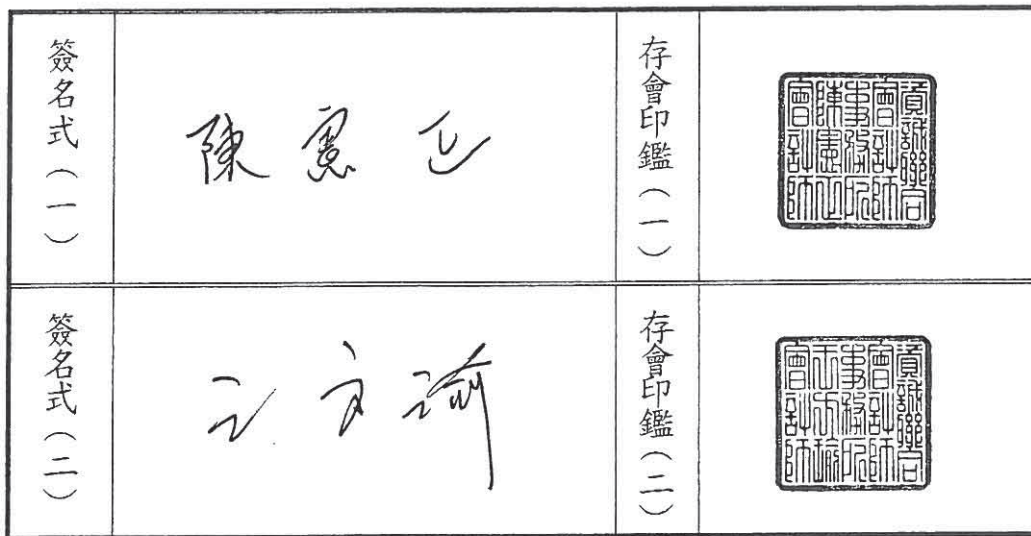 簽名式（一）
陳憲正
存會印鑑（一）
資誠聯合
會計師
事務所
陳憲正
會計師
簽名式（二）
王方瑜
存會印鑑（二）
資誠聯合
會計師
事務所
王方瑜
會計師